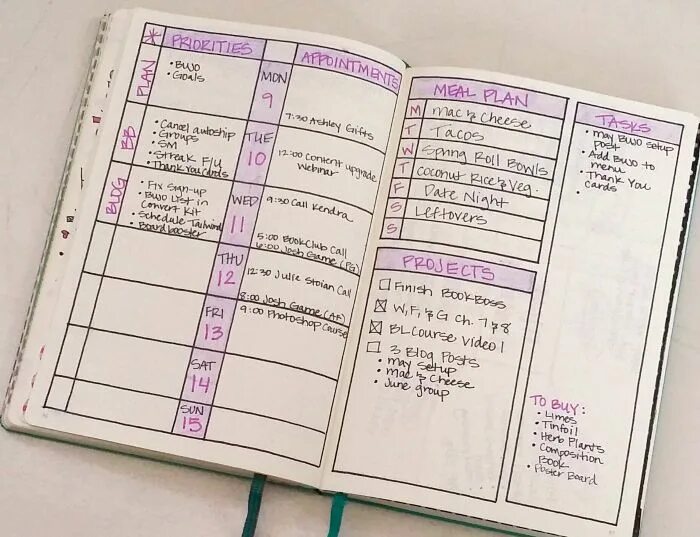 * PRIORITIES
PLAN
• BUJO
• Goals
BB
• Cancel autoship
• Groups
• SM
• Streak F/U
• Thank you cards
BLOG
• Fix sign-up
• BUJO List in
Convert Kit
• Schedule Tailwind
• Boardbooster
APPOINTMENTS
MON
9
7:30 Ashley Gifts
TUE
10
12:00 Content upgrade
Webinar
WED
11
9:30 Call Kendra
5:00 Book Club Call
6:00 Josh Game (PG)
THU
12
12:30 Julie Stoian Call
8:00 Josh Game (AF)
FRI
13
9:00 Photoshop Course
SAT
14
SUN
15
MEAL PLAN
M Mac & Cheese
T Tacos
W Spring Roll Bowls
T Coconut Rice & Veg.
F Date Night
S Leftovers
S
PROJECTS
Finish BookBoss
W, F, & G Ch. 7 & 8
BL Course Video 1
3 Blog Posts
• May Setup
• Mac & Cheese
• June group
TASKS
• May BUJO setup
post
• Add BUJO to
menu
• Thank You
Cards
TO BUY:
• Limes
• Tinfoil
• Herb Plants
• Composition
Book
• Poster Board